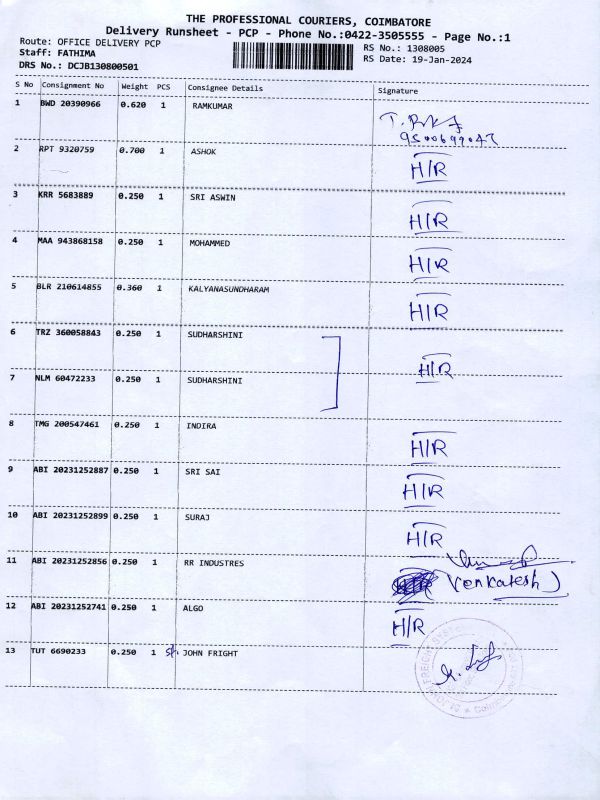 THE PROFESSIONAL COURIERS, COIMBATORE
Delivery Runsheet - PCP - Phone No.:0422-3505555 - Page No.:1
Route: OFFICE DELIVERY PCP
RS No.: 1308005
Staff: FATHIMA
RS Date: 19-Jan-2024
DRS No.: DCJB130800501
S No Consignment No Weight PCS Consignee Details Signature
1 BWD 20390966 0.620 1 RAMKUMAR
2 RPT 9320759 0.700 1 ASHOK H/R
3 KRR 5683889 0.250 1 SRI ASWIN H/R
4 MAA 943868158 0.250 1 MOHAMMED H/R
5 BLR 210614855 0.360 1 KALYANASUNDHARAM H/R
6 TRZ 360058843 0.250 1 SUDHARSHINI H/R
7 NLM 60472233 0.250 1 SUDHARSHINI
8 TMG 200547461 0.250 1 INDIRA H/R
9 ABI 20231252887 0.250 1 SRI SAI H/R
10 ABI 20231252899 0.250 1 SURAJ H/R
11 ABI 20231252856 0.250 1 RR INDUSTRES (Venkatesh)
12 ABI 20231252741 0.250 1 ALGO H/R
13 TUT 6690233 0.250 1 JOHN FRIGHT